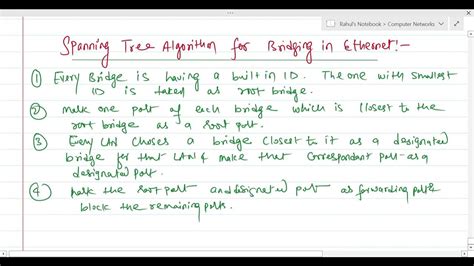 Rahul's Notebook > Computer Networks
Spanning Tree Algorithm for Bridging in Ethernet!-
① Every Bridge is having a built in ID. The one with smallest
ID is taken as root bridge.
② mark one port of each bridge which is closest to the
root bridge as a root port.
③ Every LAN choses a bridge closest to it as a designated
bridge for that LAN & make that correspondant port as a
designated port.
④ mark the root port and designated port as forwarding ports
block the remaining ports.